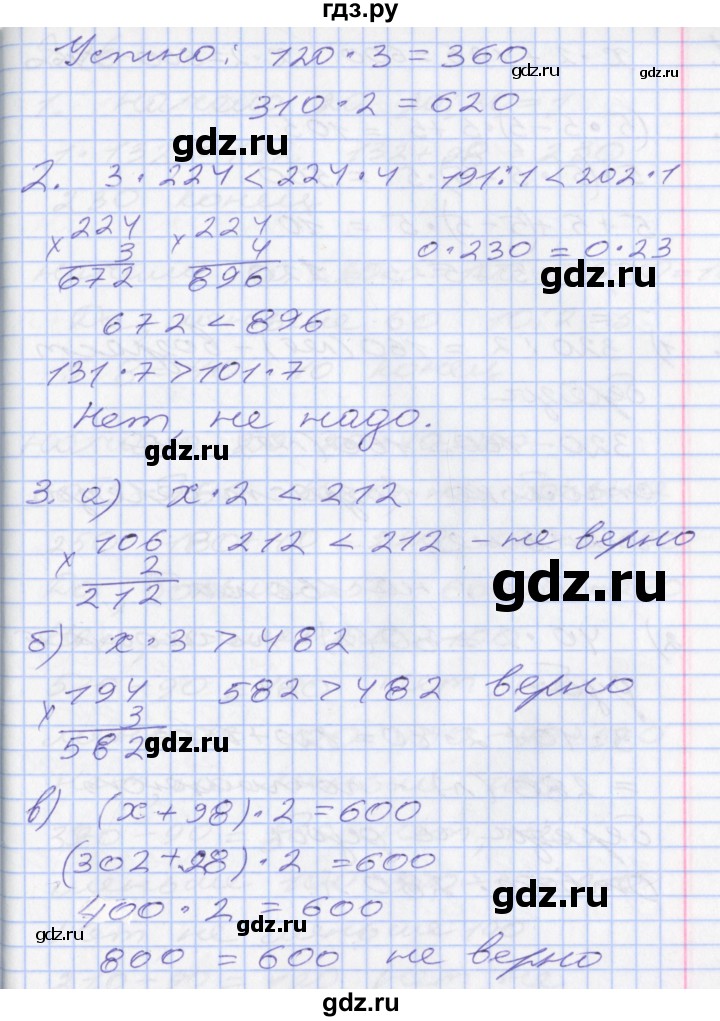 гдз.ру
Устно: 120 · 3 = 360
gdz.ru
gdz.ru
310 · 2 = 620
gdz.ru
2. 3 · 224 < 224 · 4   191 : 1 < 202 · 1
× 224   × 224
3   4   0 · 230 = 0 · 23
672   896
gdz.ru
672 < 896
131 · 7 > 101 · 7
Нет, не надо.
gdz.ru
3. а) х · 2 < 212
× 106   212 < 212 – не верно
2
212
gdz.ru
б) х · 3 > 482
× 194   582 > 482 верно
3
582
gdz.ru
в) (х + 98) · 2 = 600
(302 + 98) · 2 = 600
gdz.ru
400 · 2 = 600
gdz.ru
800 = 600 не верно
gdz.ru
gdz.ru